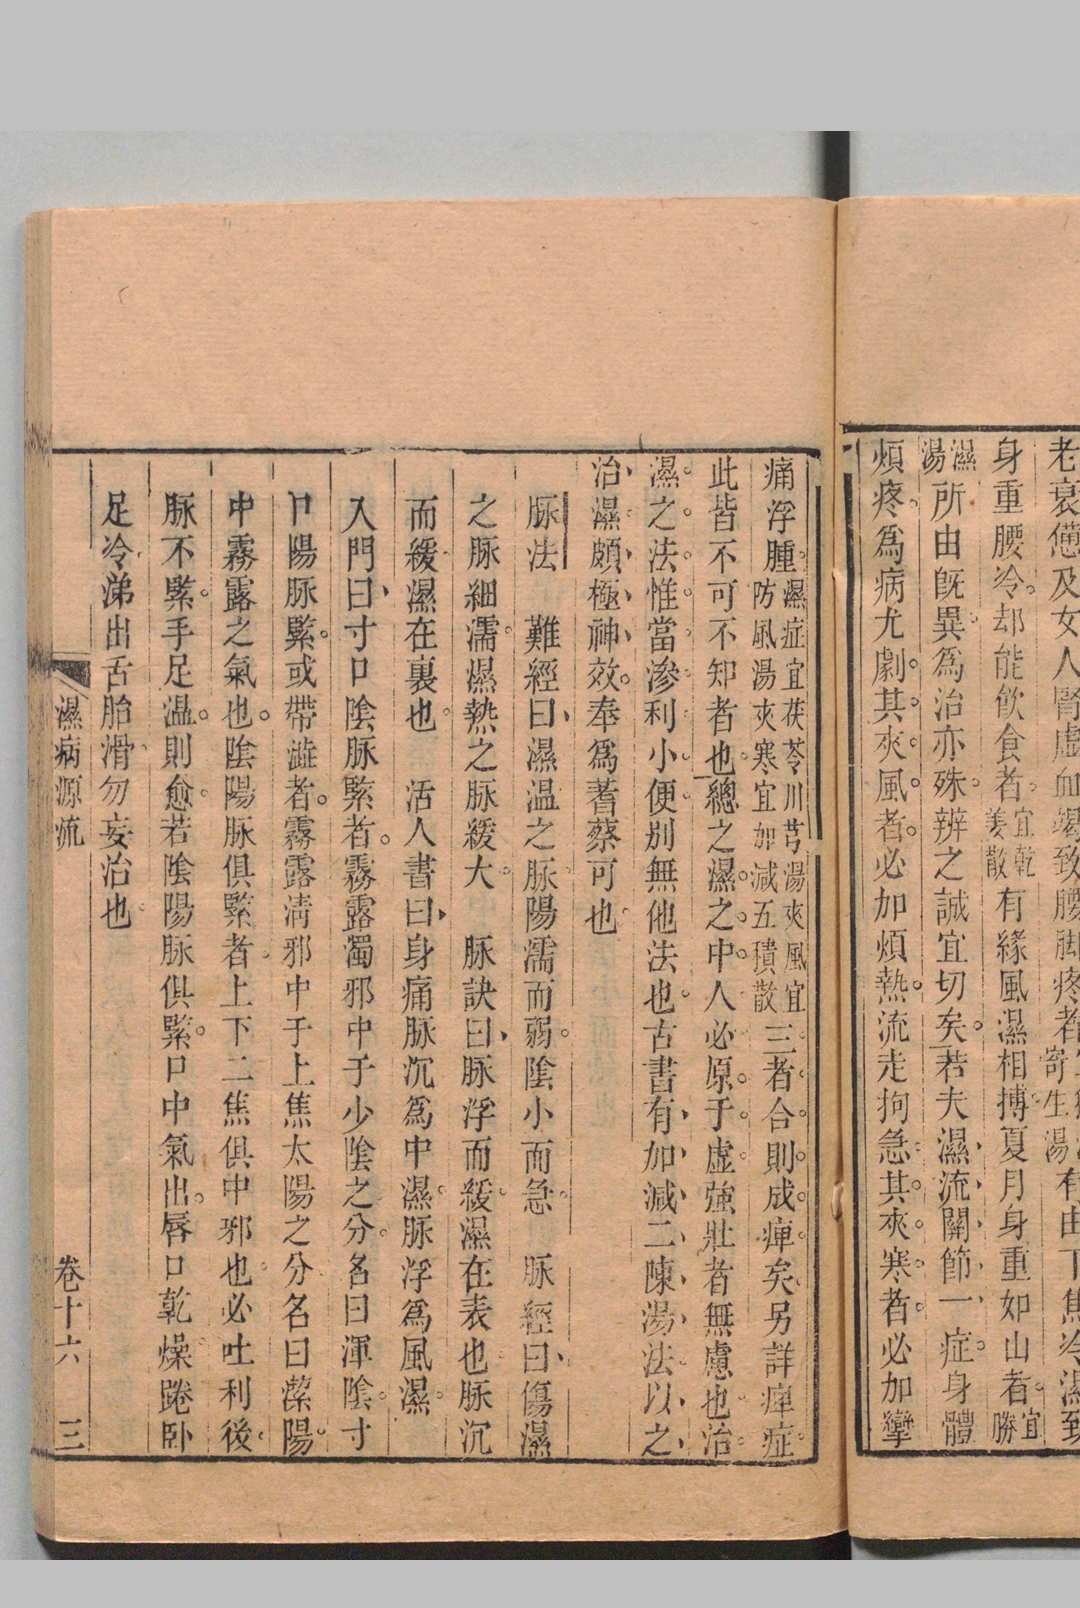 老衰憊及女人腎虛血竭致腰脚疼者
寄生湯
有由下焦冷濕致
身重腰冷却能飲食者
宜乾
姜散
有緣風濕相搏夏月身重如山者
宜
勝
濕
湯
所由旣異爲治亦殊辨之誠宜切矣若夫濕流關節一症身體
煩疼爲病尤劇其夾風者必加煩熱流走拘急其夾寒者必加攣
痛浮腫
濕症宜茯苓川芎湯夾風宜
防風湯夾寒宜加減五積散
三者合則成痺矣另詳痺症
此皆不可不知者也總之濕之中人必原于虛強壯者無慮也治
濕之法惟當滲利小便別無他法也古書有加減二陳湯法以之
治濕頗極神效奉爲蓍蔡可也
脈法　難經曰濕温之脈陽濡而弱陰小而急　脈經曰傷濕
之脈細濡濕熱之脈緩大　脈訣曰脈浮而緩濕在表也脈沉
而緩濕在裏也　活人書曰身痛脈沉爲中濕脈浮爲風濕
入門曰寸口陰脈緊者霧露濁邪中于少陰之分名曰渾陰寸
口陽脈緊或帶澁者霧露淸邪中于上焦太陽之分名曰潔陽
中霧露之氣也陰陽脈俱緊者上下二焦俱中邪也必吐利後
脈不緊手足温則愈若陰陽脈俱緊口中氣出唇口乾燥踡臥
足冷涕出舌胎滑勿妄治也
濕病源流
卷十六
三